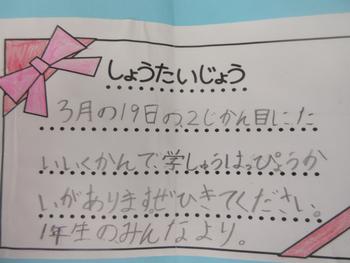 しょうたいじょう
3月の19日の、2じかん目にた
いいくかんで、学しゅうはっぴょうか
いがあります。ぜひきてください。
1年生のみんなより。